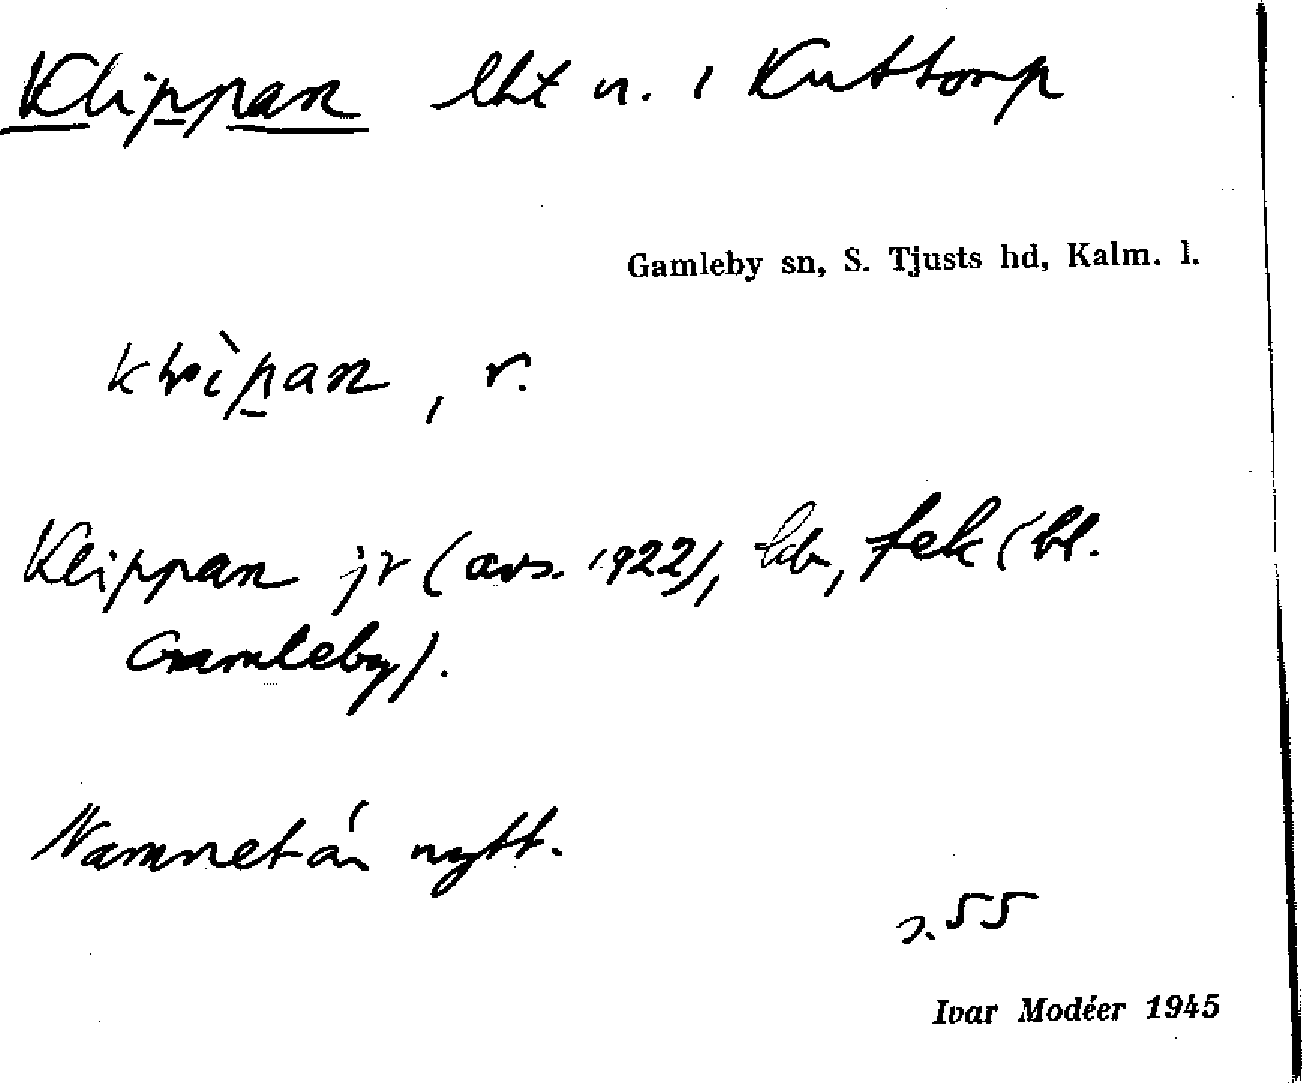 Klippan lht n. i Kuttorp
Gamleby sn, S. Tjusts hd, Kalm. l.
klìpan, r.
Klippan jr (avs. 1922), fek (bl.
Gamleby).
Namnet är nytt.
s. 55
Ivar Modéer 1945